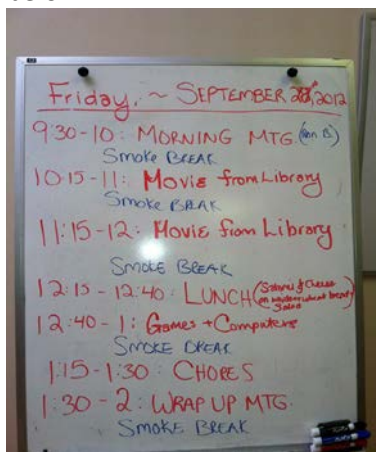 Friday. ~ SEPTEMBER 28, 2012
9:30-10: MORNING MTG.
Smoke BREAK
10:15-11: Movie from Library
Smoke BREAK
11:15-12: Movie from Library
SMOKE BREAK
12:15 - 12:40: LUNCH (Salami & Cheese
on
Salad
12:40 - 1: Games + Computers
SMOKE BREAK
1:15-1:30: CHORES
1:30 - 2: WRAP UP MTG.
SMOKE BREAK